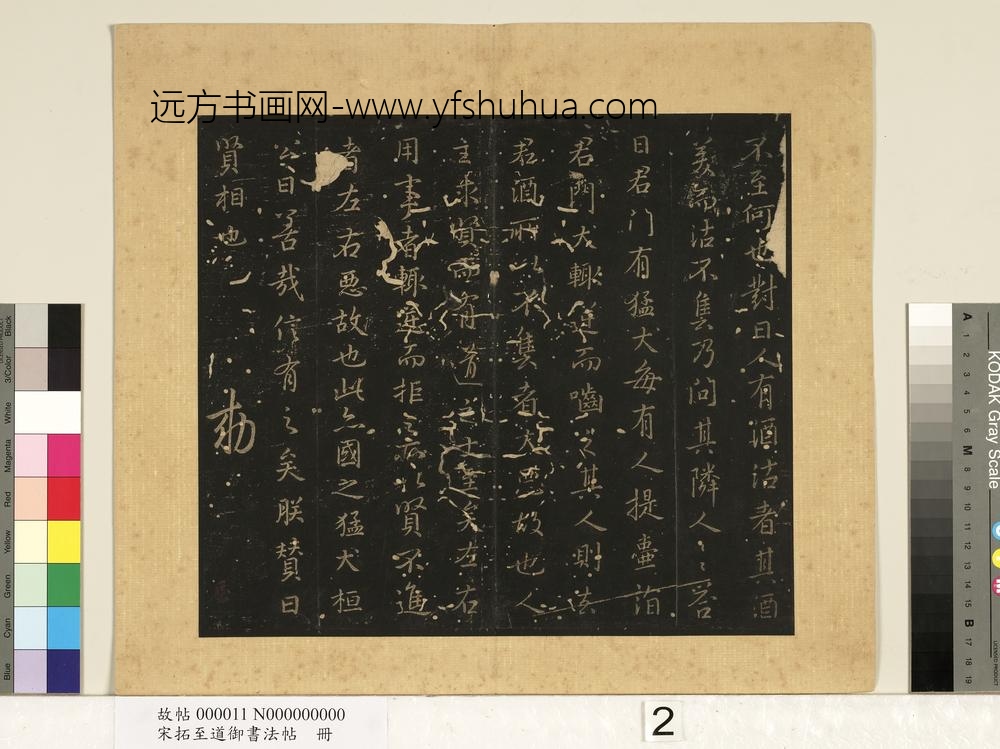 远方书画网-www.yfshuhua.com
不至何也對曰人有酒沽者其酒
美而沽不售乃问其隣人〻答
曰君门有猛犬每有人提壷詣
君門犬輙迎而嚙之其人則
君酒所以不售者犬惡故也人
主求賢而有道之士至矣左右
用事者輙塞而拒之 賢不進
者左右惡故也此亦國之猛犬桓
公曰善哉信有之矣朕賛曰
賢相也
勅
故帖 000011 N000000000
宋拓至道御書法帖 冊
2
Black
3/Color
White
Magenta
Red
Yellow
Green
Cyan
Blue
KODAK Gray Scale
A 1 2 3 4 5 6 M 8 9 10 11 12 13 14 15 B 17 18 19